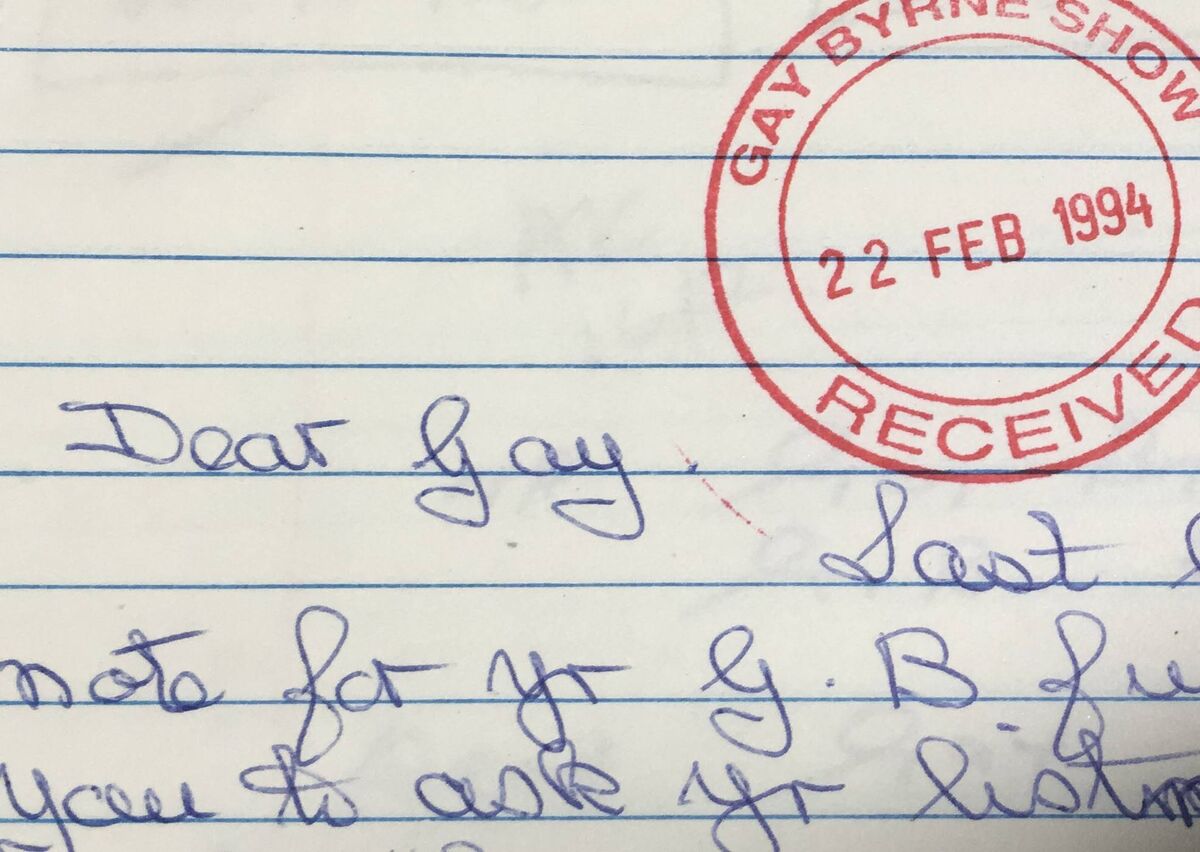 GAY BYRNE SHOW
22 FEB 1994
RECEIVED
Dear Gay.
Last
note for yr G. B
you to ask yr